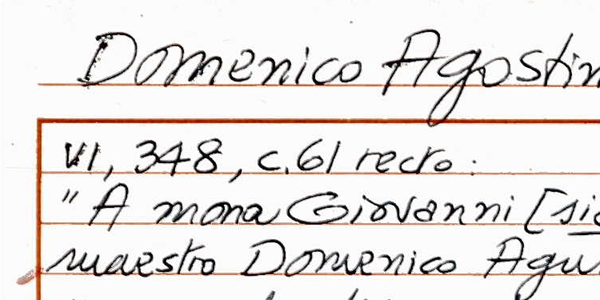 Domenico Agostin
VI, 348, c.61 recto:
"A mona Giovanni [sic
maestro Domenico Agu